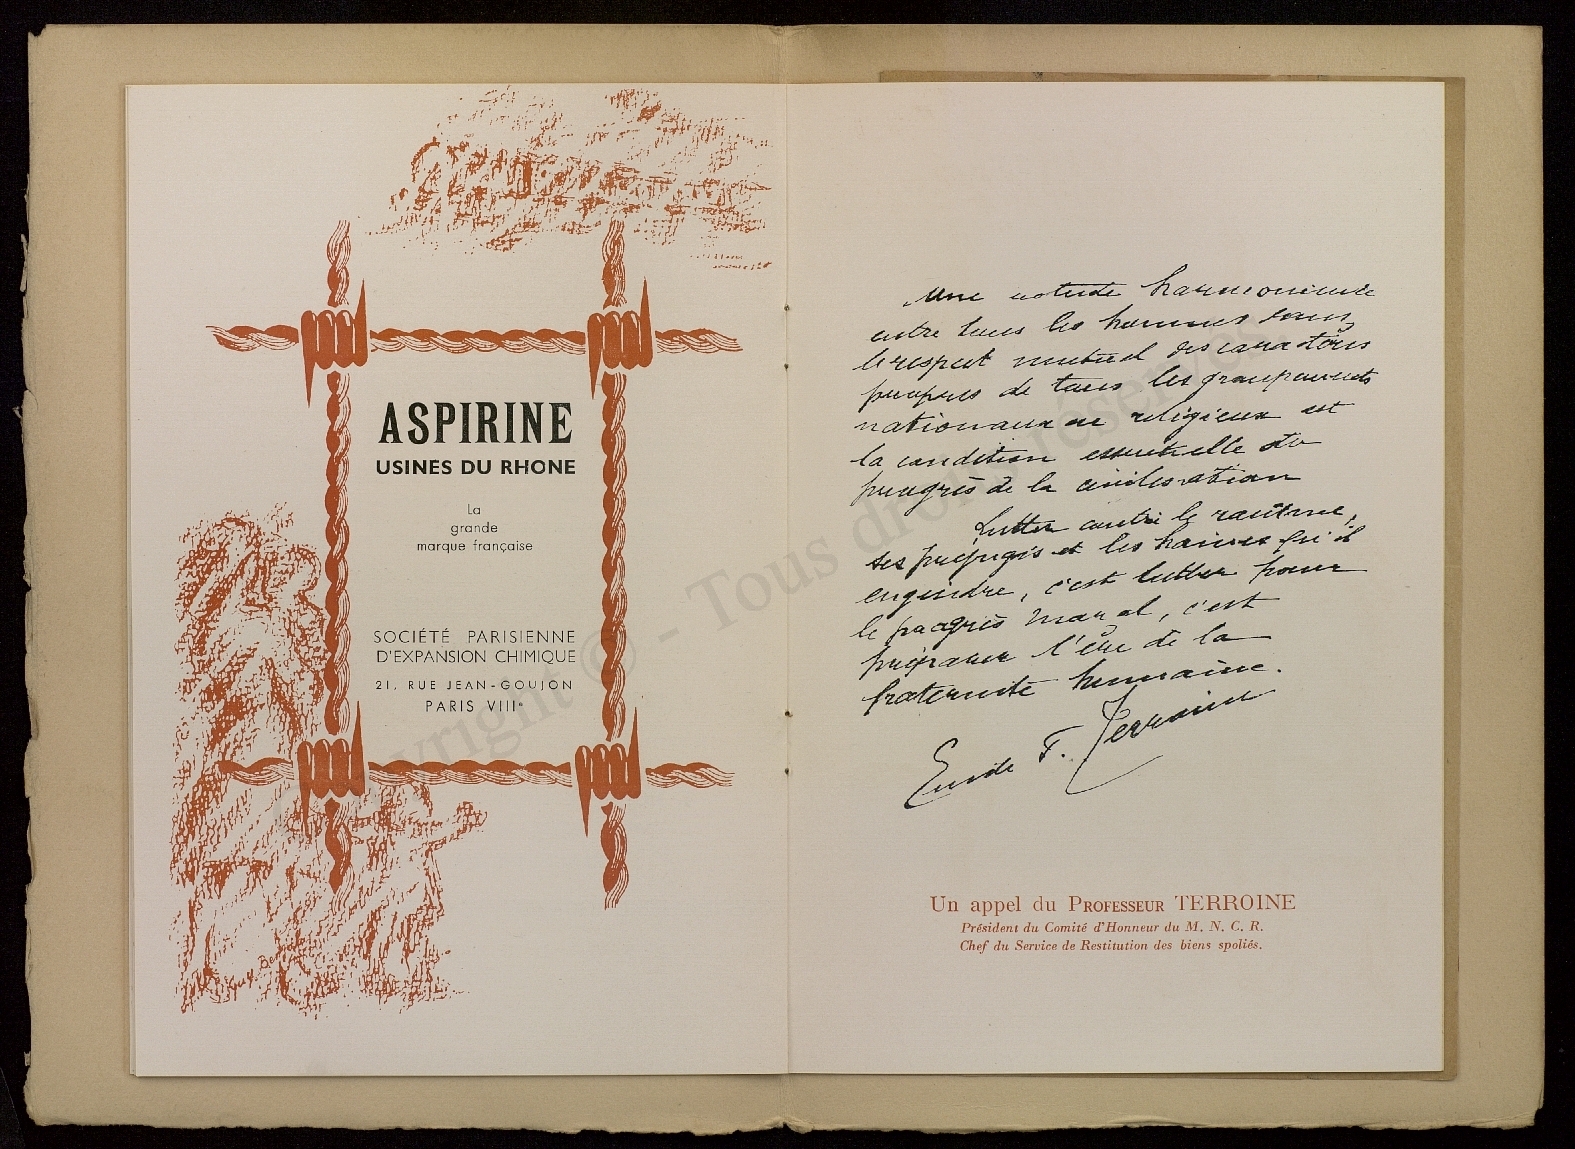 ASPIRINE
USINES DU RHONE
La
grande
marque française
SOCIÉTÉ PARISIENNE
D'EXPANSION CHIMIQUE
21, RUE JEAN-GOUJON
PARIS VIIIe
Une entente harmonieuse
entre tous les hommes dans
le respect mutuel des caractères
propres de tous les groupements
nationaux ou religieux est
la condition essentielle du
progrès de la civilisation
Lutter contre le racisme,
ses préjugés et les haines qu'il
engendre, c'est lutter pour
le progrès moral, c'est
préparer l'ère de la
fraternité humaine.
Emile F. Terroine
Un appel du PROFESSEUR TERROINE
Président du Comité d'Honneur du M. N. C. R.
Chef du Service de Restitution des biens spoliés.
Copyright © - Tous droits réservés